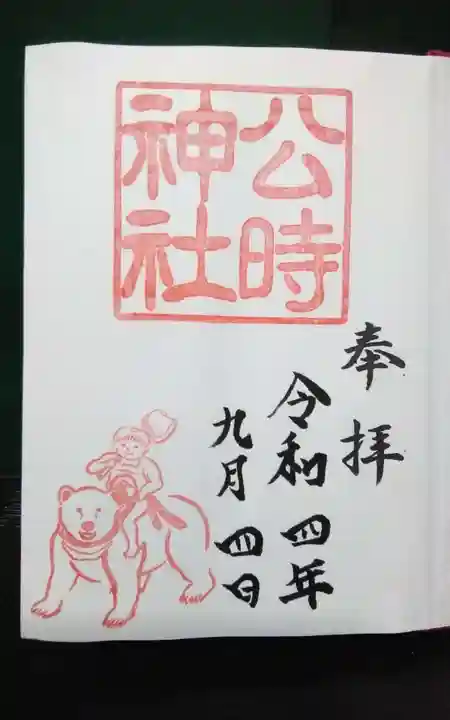 公時
神社
奉拝
令和四年
九月四日